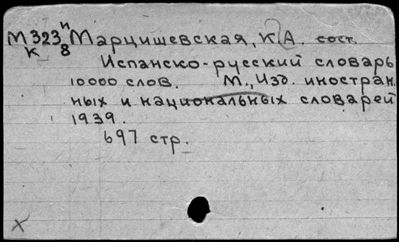 М 323 и Марцишевская, К. А. сост.
К 8
Испанско-русский словарь
10000 слов. М., Изд. иностран
ных и национальных словарей
1939.
697 стр.
х